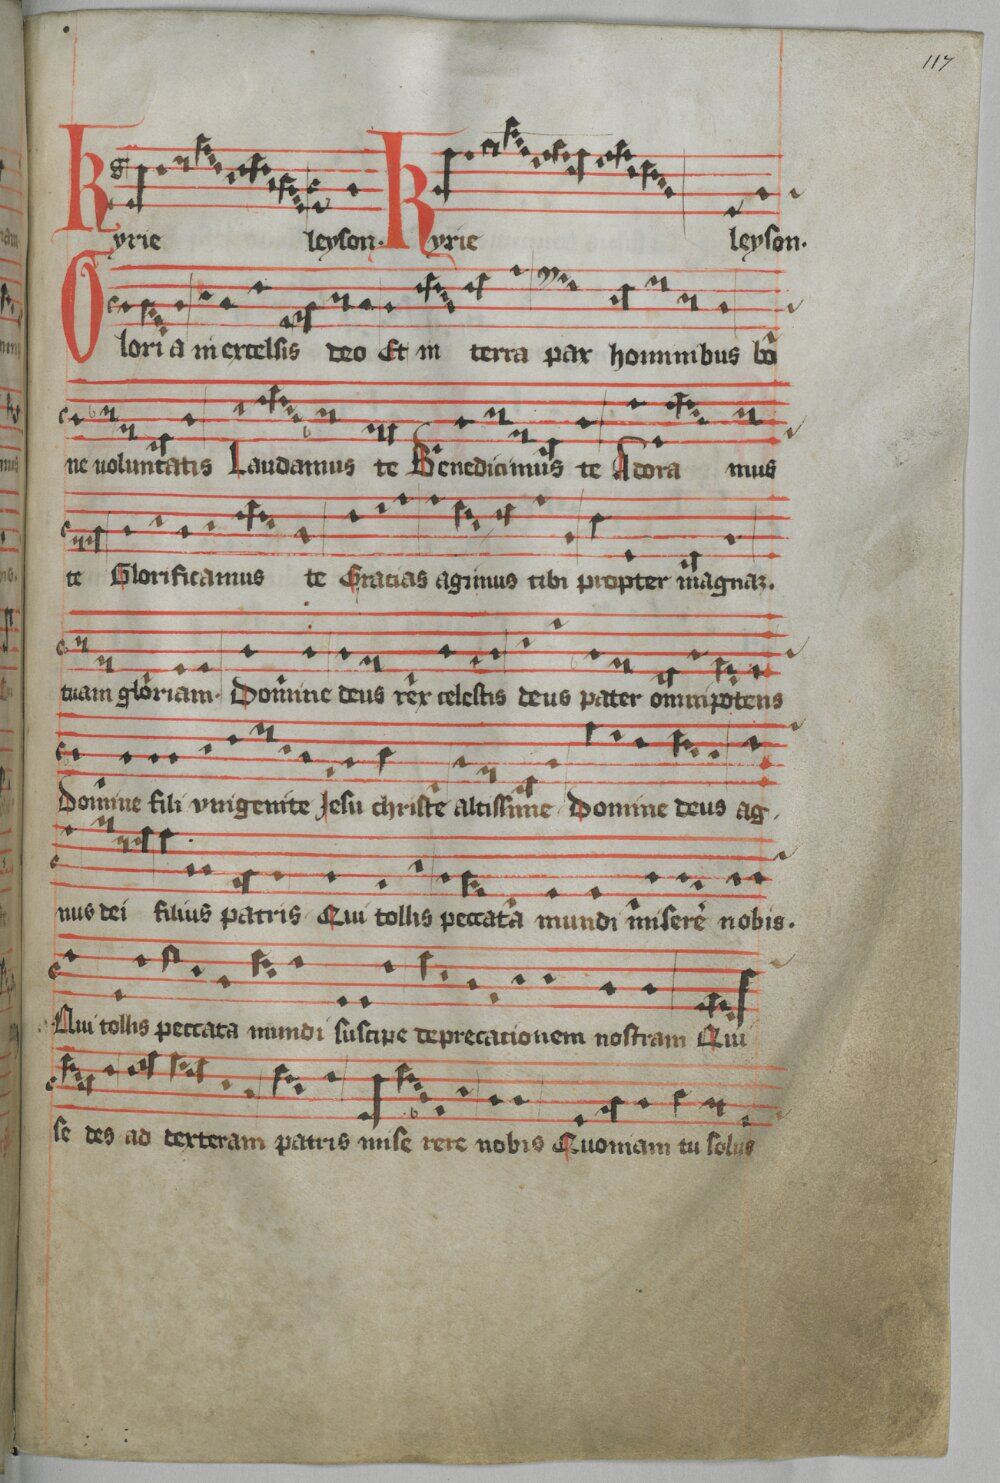 117
Kyrie leyson. Kyrie leyson.
Gloria in excelsis deo Et in terra pax hominibus bo
ne voluntatis Laudamus te Benedicimus te Adora mus
te Glorificamus te Gracias agimus tibi propter magnaz.
tuam gloriam. Domine deus rex celestis deus pater omnipotens
Domine fili vnigenite Jesu christe altissime Domine deus ag
nus dei filius patris Qui tollis peccata mundi miserere nobis.
Qui tollis peccata mundi suscipe deprecacionem nostram Qui
se des ad dexteram patris mise rere nobis Quoniam tu solus